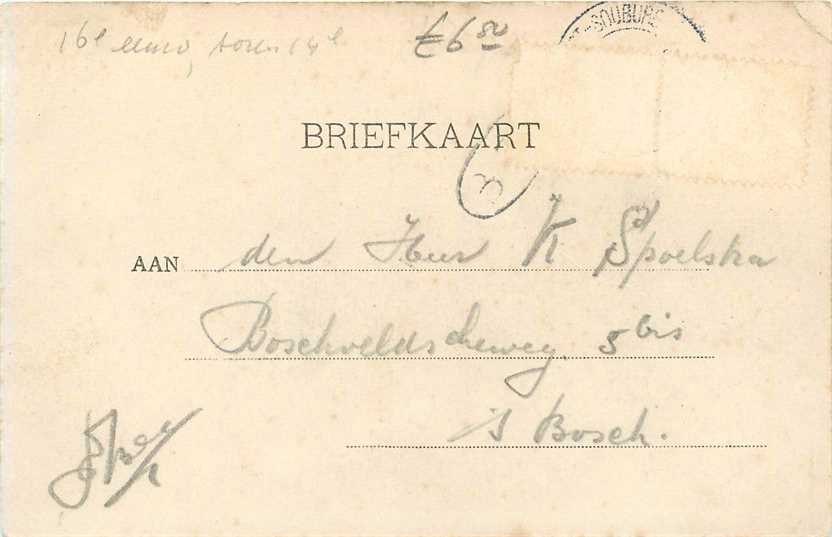 €6 50
-SOUBURG
BRIEFKAART
3
AAN den Heer K Spoelstra
Boschveldscheweg 5 bis
's Bosch.